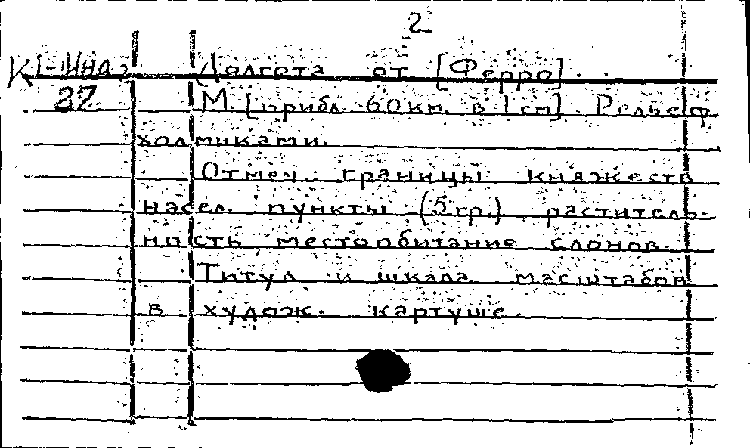 2
К1-Инд.2 Долгота от [Ферро].
37 М. [прибл. 60 км. в 1 см]. Рельеф
холмиками.
Отмеч. границы княжеств
насел. пункты (5 гр.) раститель-
ность местообитание слонов.
Титул и шкала масштабов
в худож. картуше.